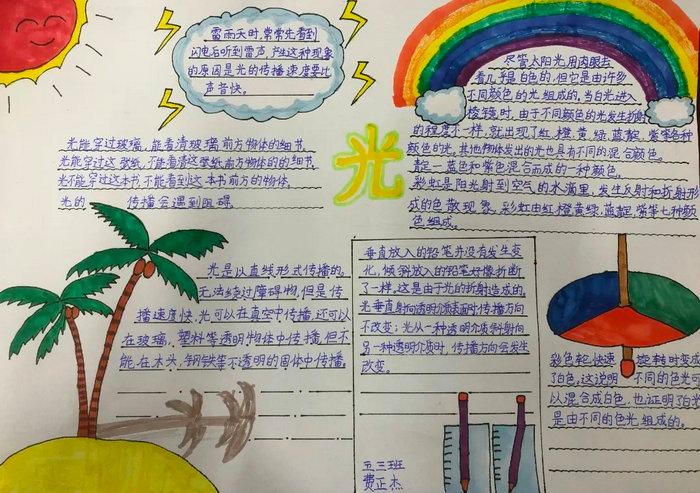 雷雨天时,常常先看到
闪电后听到雷声,产生这种现象
的原因是光的传播速度要比
声音快。
尽管太阳光用肉眼去
看几乎是白色的,但它是由许多
不同颜色的光组成的。当白光进入
棱镜时,由于不同颜色的光发生折射
的程度不一样,就出现了红、橙、黄、绿、蓝靛、紫等各种
颜色的光。其他物体发出的光也具有不同的混合颜色。
靛—蓝色和紫色混合而成的一种颜色。
彩虹是阳光射到空气的水滴里,发生反射和折射形
成的色散现象。彩虹由红橙黄绿、蓝靛、紫等七种颜
色组成。
光能穿过玻璃,能看清玻璃前方物体的细节。
光能穿过这张纸,不能看清这张纸前方物体的的细节。
光不能穿过这本书,不能看到这本书前方的物体。
光的 传播会遇到阻碍
光
光是以直线形式传播的,
无法绕过障碍物,但是传
播速度快,光可以在真空中传播,还可以
在玻璃,塑料等透明物体中传播,但不
能在木头,钢铁等不透明的固体中传播。
垂直放入的铅笔并没有发生变
化,倾斜放入的铅笔好像折断
了一样,这是由于光的折射造成的。
光垂直射向透明介质表面时,传播方向
不改变;光从一种透明介质斜射向
另一种透明介质时,传播方向会发生
改变。
彩色轮快速 旋转时变成
了白色,这说明 不同的色光可
以混合成白色,也证明了白光
是由不同的色光组成的。
五三班
费正杰